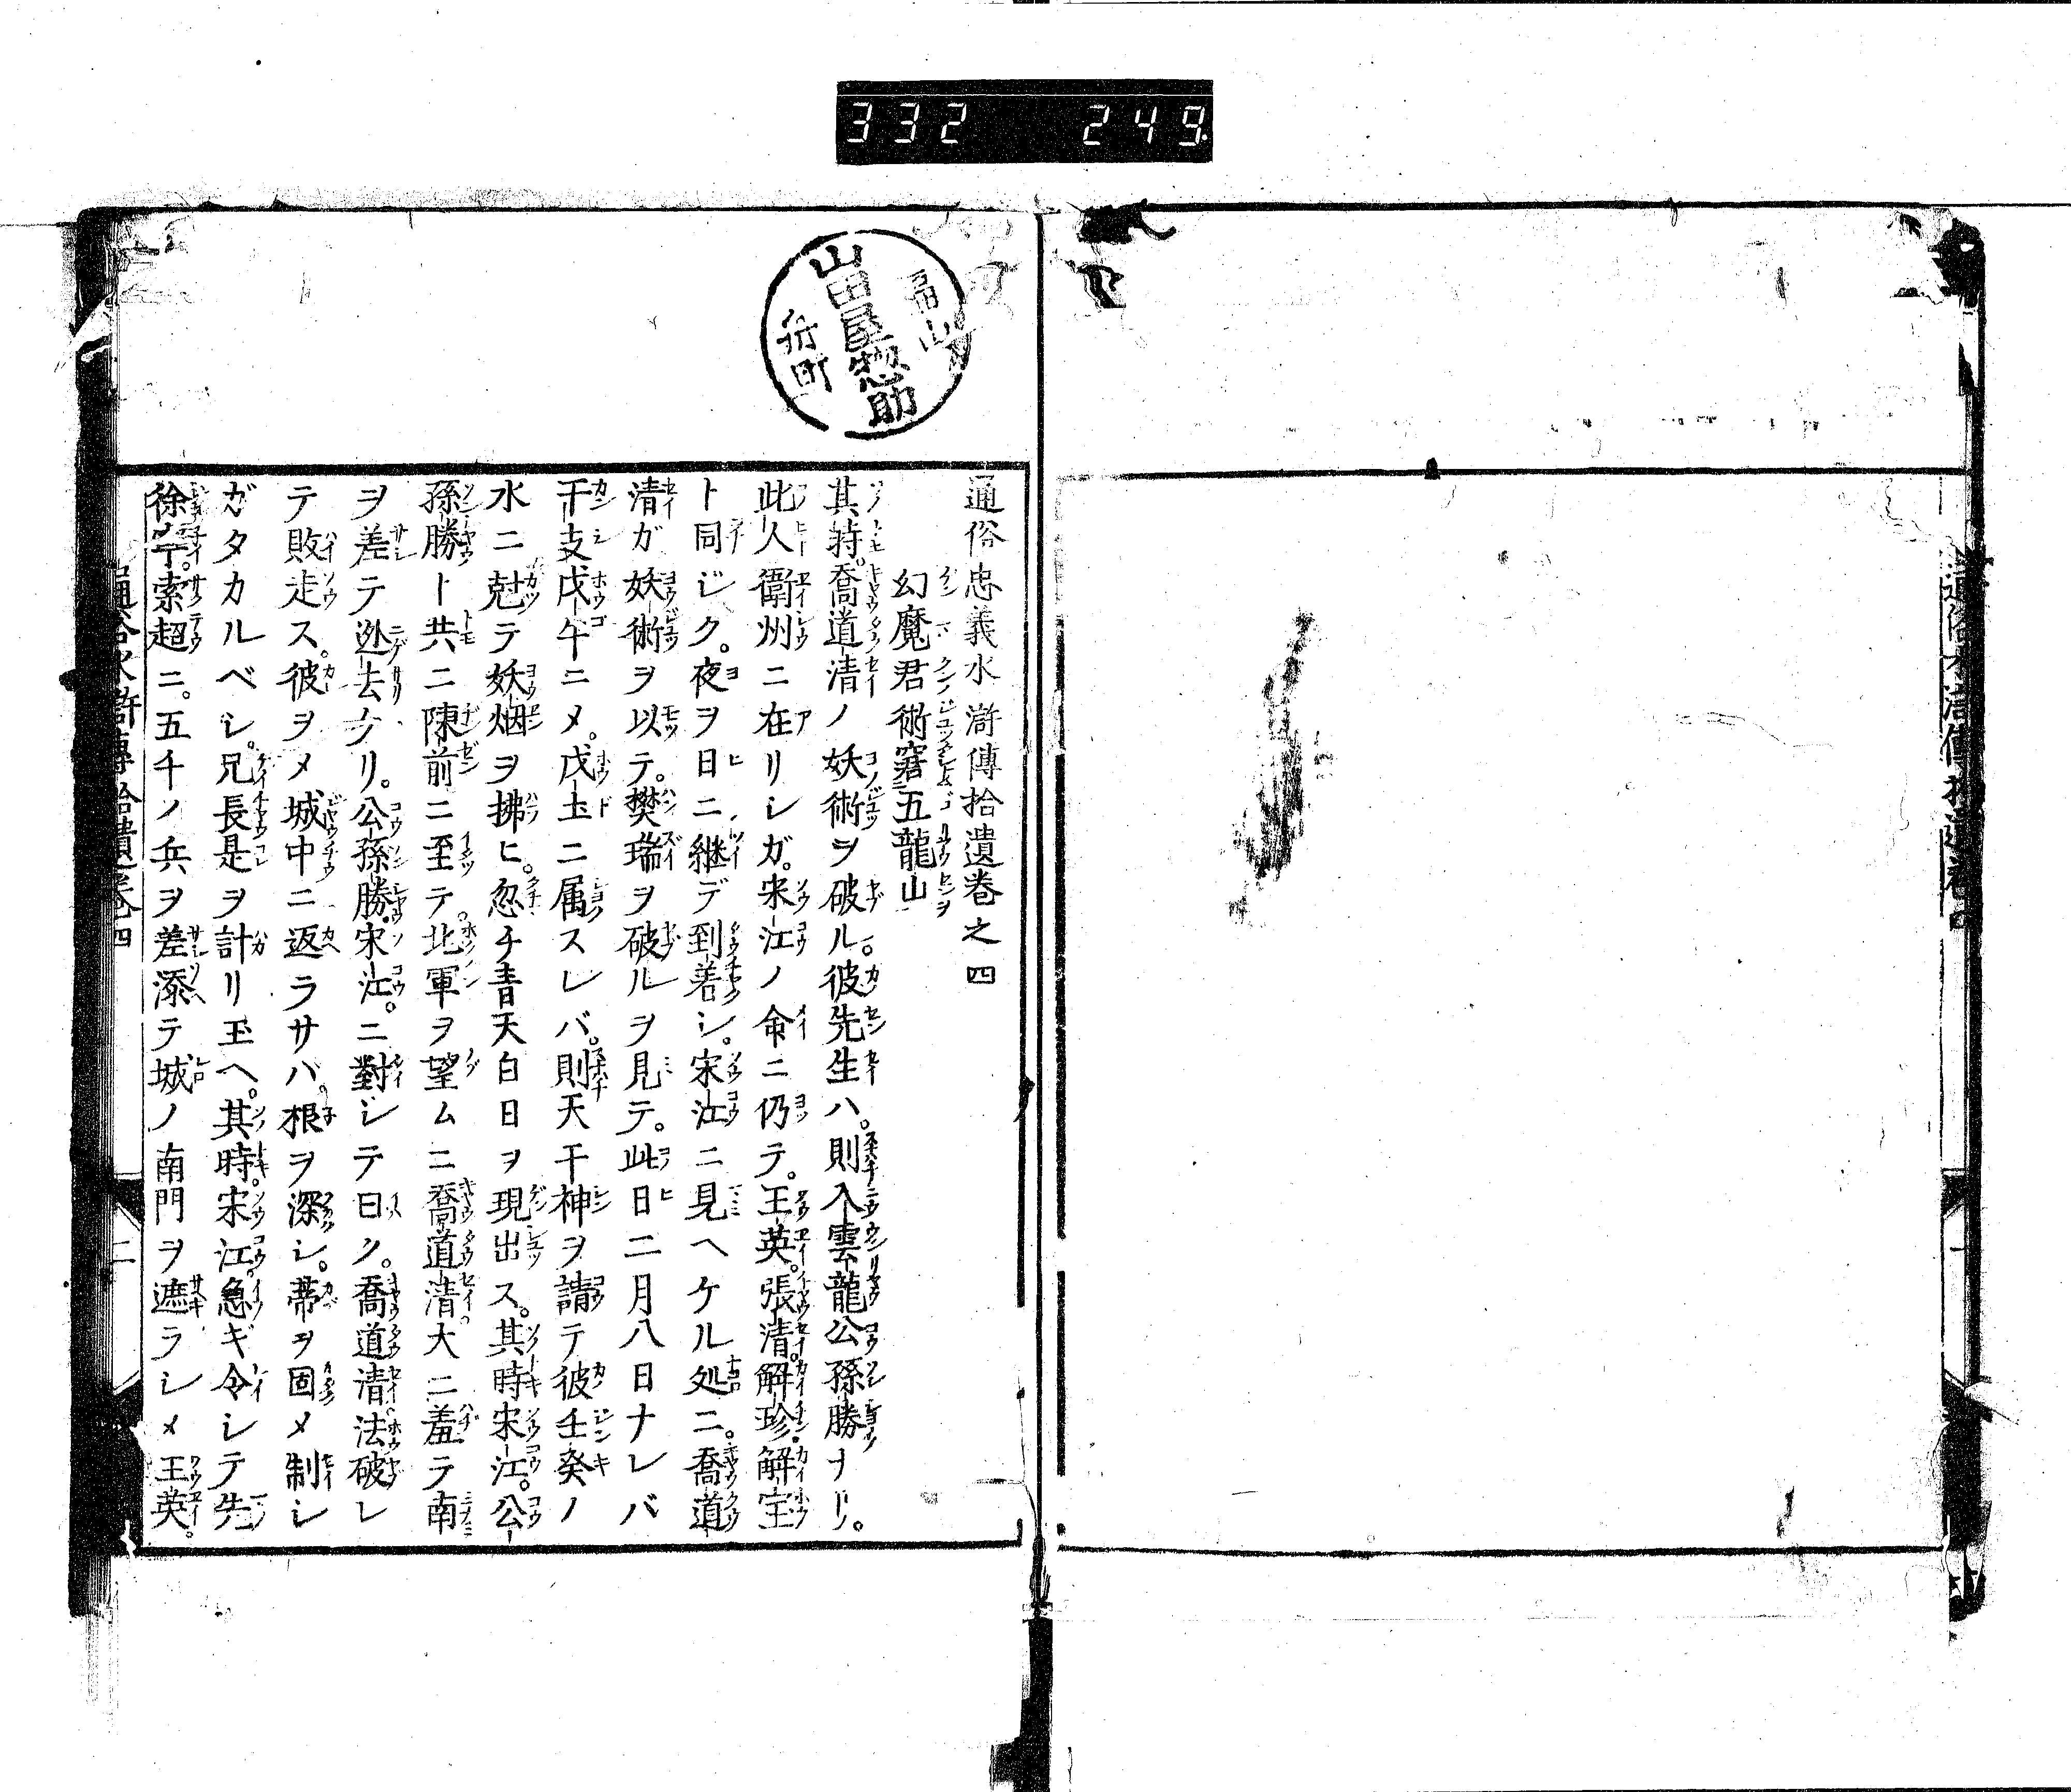 332 249
通俗水滸傳拾遺巻四
一
山田屋惣助
通俗忠義水滸傳拾遺巻之四
幻魔君術窘五龍山
其時。喬道清ノ妖術ヲ破ル。彼先生ハ。則入雲龍公孫勝ナリ。
此人衛州ニ在リシガ。宋江ノ命ニ仍テ。王英。張清。解珍。解宝
ト同ジク。夜ヲ日ニ継デ到着シ。宋江ニ見ヘケル処ニ。喬道
清ガ妖術ヲ以テ。樊瑞ヲ破ルヲ見テ。此日二月八日ナレバ
干支戊午ニメ。戊土ニ属スレバ。則天干神ヲ請テ彼壬癸ノ
水ニ尅テ妖烟ヲ拂ヒ。忽チ青天白日ヲ現出ス。其時宋江。公
孫勝ト共ニ陳前ニ至テ。北軍ヲ望ムニ喬道清。大ニ羞テ南
ヲ差テ迯去ケリ。公孫勝。宋江。ニ對シテ曰ク。喬道清。法破レ
テ敗走ス。彼ヲメ城中ニ返ラサバ。根ヲ深シ。蒂ヲ固メ制シ
ガタカルベシ。兄長是ヲ計リ玉ヘ。其時。宋江。急ギ令シテ先
徐寧。索超ニ。五千ノ兵ヲ差添テ城ノ南門ヲ遮ラシメ王英。
通俗水滸傳拾遺巻四
二